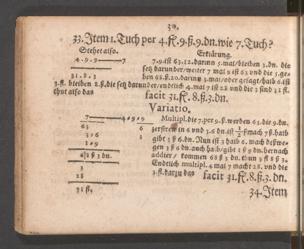 30.
33. Item 1. Tuch per 4. fl. 9. ß. 9. dn. wie 7. Tuch?
Stehet also.
Erklärung.
4 · 9 · 9 — 7
7. 9 ist 63. 12. darunn 5. mal/ bleiben 3. dn. die
setz darunder/weiter 7 mal 9 ist 63 und die 5
ben 68. ß. 20. darunn 3. mal/
31 . 8 . 3
3. fl. bleiben 8. ß. die setz darunder/endlich 4. mal 7 ist 28 und die 3 sind 31 fl.
thut also das
facit 31. fl. 8. ß. 3. dn.
Variatio.
7 — 4 · 9 · 9
Multipl. die 7. per 9. ß. werden 63. die 9. dn.
zerstrew in 6 und 3. 6 dn. ist ½ ß mach 7 ß. halb
gibt 3 ß 6 dn. Nun ist 3 halb 6. mach
gen 1 ß 9 dn. auch halb/gibt 1 ß 9 dn. hernach
addier/ kommen 68 ß 3 dn. thun 3 fl 8 ß 3.
Endlich multipl. 4 mal 7 macht 28. und die
3. fl. darzu das
facit 31. fl. 8. ß. 3. dn.
63
3 6
1 9
68 ß 3 dn.
3
28
31 fl.
34. Item